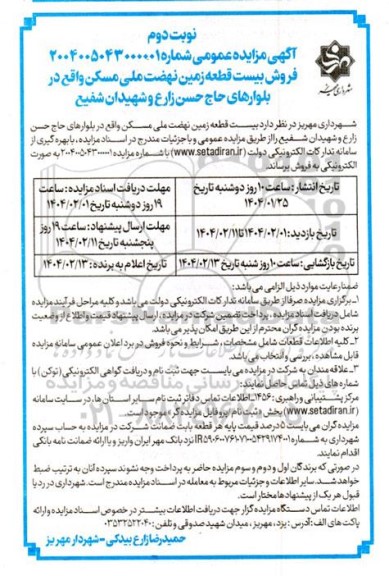 نوبت دوم
آگهی مزایده عمومی شماره ۲۰۰۴۰۰۵۰۴۳۰۰۰۰۰۱
فروش بیست قطعه زمین نهضت ملی مسکن واقع در
بلوارهای حاج حسن زارع و شهیدان شفیع
شهرداری مهریز
شهرداری مهریز در نظر دارد بیست قطعه زمین نهضت ملی مسکن واقع در بلوارهای حاج حسن
زارع و شهیدان شفیع را از طریق مزایده عمومی و با جزئیات مندرج در اسناد مزایده، با بهره گیری از
سامانه تدارکات الکترونیکی دولت (www.setadiran.ir) با شماره مزایده ۲۰۰۴۰۰۵۰۴۳۰۰۰۰۰۱ به صورت
الکترونیکی به فروش برساند.
تاریخ انتشار: ساعت ۱۰ روز دوشنبه تاریخ
۱۴۰۴/۰۱/۲۵
مهلت دریافت اسناد مزایده: ساعت
۱۹ روز دوشنبه تاریخ ۱۴۰۴/۰۲/۰۱
تاریخ بازدید: ۱۴۰۴/۰۲/۰۱ تا ۱۴۰۴/۰۲/۱۱
مهلت ارسال پیشنهاد: ساعت ۱۹ روز
پنجشنبه تاریخ ۱۴۰۴/۰۲/۱۱
تاریخ بازگشایی: ساعت ۱۰ روز شنبه تاریخ ۱۴۰۴/۰۲/۱۳
تاریخ اعلام به برنده: ۱۴۰۴/۰۲/۱۳
ضمنا رعایت موارد ذیل الزامی می باشد:
۱-برگزاری مزایده صرفا از طریق سامانه تدارکات الکترونیکی دولت می باشد و کلیه مراحل فرآیند مزایده
شامل دریافت اسناد مزایده، پرداخت تضمین شرکت در مزایده، ارسال پیشنهاد قیمت و اطلاع از وضعیت
برنده بودن مزایده گران محترم از این طریق امکان پذیر می باشد.
۲-کلیه اطلاعات قطعات شامل مشخصات، شرایط و نحوه فروش در برد اعلان عمومی سامانه مزایده
قابل مشاهده، بررسی و انتخاب می باشد.
۳-علاقه مندان به شرکت در مزایده می بایست جهت ثبت نام و دریافت گواهی الکترونیکی (توکن) با
شماره های ذیل تماس حاصل نمایند:
مرکز پشتیبانی و راهبری: ۱۴۵۶-اطلاعات تماس دفاتر ثبت نام سایر استان ها، در سایت سامانه
(www.setadiran.ir) بخش «ثبت نام/پروفایل مزایده گر» موجود است.
مزایده گران می بایست ۵ درصد قیمت پایه هر قطعه بابت ضمانت شرکت در مزایده به حساب سپرده
شهرداری به شماره نزد بانک مهر ایران واریز و یا ارائه ضمانت نامه بانکی
اقدام نمایند.
در صورتی که برندگان اول و دوم و سوم مزایده حاضر به پرداخت وجه نشوند سپرده آنان به ترتیب ضبط
خواهد شد. سایر اطلاعات و جزئیات مربوط به معامله در اسناد مزایده مندرج است. شهرداری در رد یا
قبول هر یک از پیشنهادها مختار است.
اطلاعات تماس دستگاه مزایده گزار جهت دریافت اطلاعات بیشتر در خصوص اسناد مزایده و ارائه
پاکت های الف: آدرس: یزد، مهریز، میدان شهید صدوقی و تلفن: ۰۳۵۳۲۵۲۲۰۴۰
حمیدرضا زارع بیدکی-شهردار مهریز